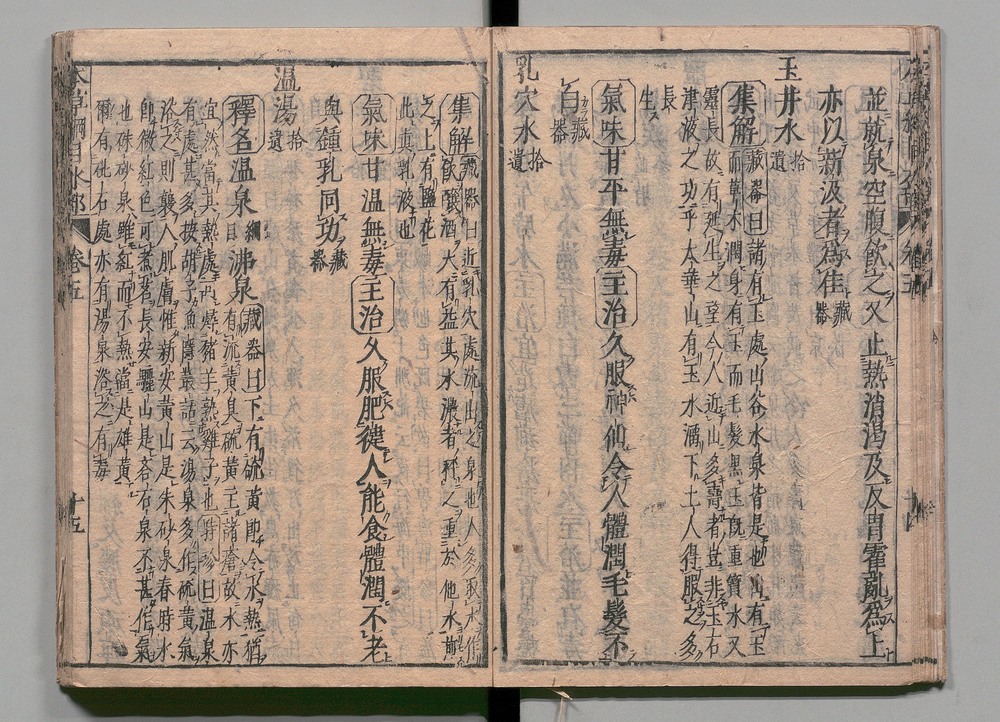 並就泉空腹飲之又止熱消渴及反胃霍亂爲上
亦以新汲者爲佳藏器
玉井水拾遺
集解藏器曰諸有玉處山谷水泉皆是也山有玉
而草木潤身有玉而毛髮黑玉既重寶水又
靈長故有延生之望今人近山多壽者豈非玉石
津液之功乎太華山有玉水溜下土人得服之多
長生
氣味甘平無毒主治久服神仙令人體潤毛髮不
白藏器
乳穴水拾遺
集解藏器曰近乳穴處流出之泉也人多取水作
飲釀酒大有益其水濃者秤之重於他水煎
之上有鹽花
此真乳液也
氣味甘溫無毒主治久服肥健人能食體潤不老
與鍾乳同功藏器
温湯拾遺
釋名温泉綱目沸泉藏器曰下有硫黃即令水熱猶
有硫黃臭硫黃主諸瘡故水亦
宜然當其熱處可燖豬羊熟雞子也時珍曰温泉
有處甚多按胡子漁隱叢話云湯泉多作硫黃氣
浴之則襲人肌膚惟新安黃山是朱砂泉春時水
即微紅色可煮茗長安驪山是礜石泉不甚作氣
也朱砂泉雖紅而不熱當是雄黃
爾有砒石處亦有湯泉浴之有毒
本草綱目水部 卷五 十五